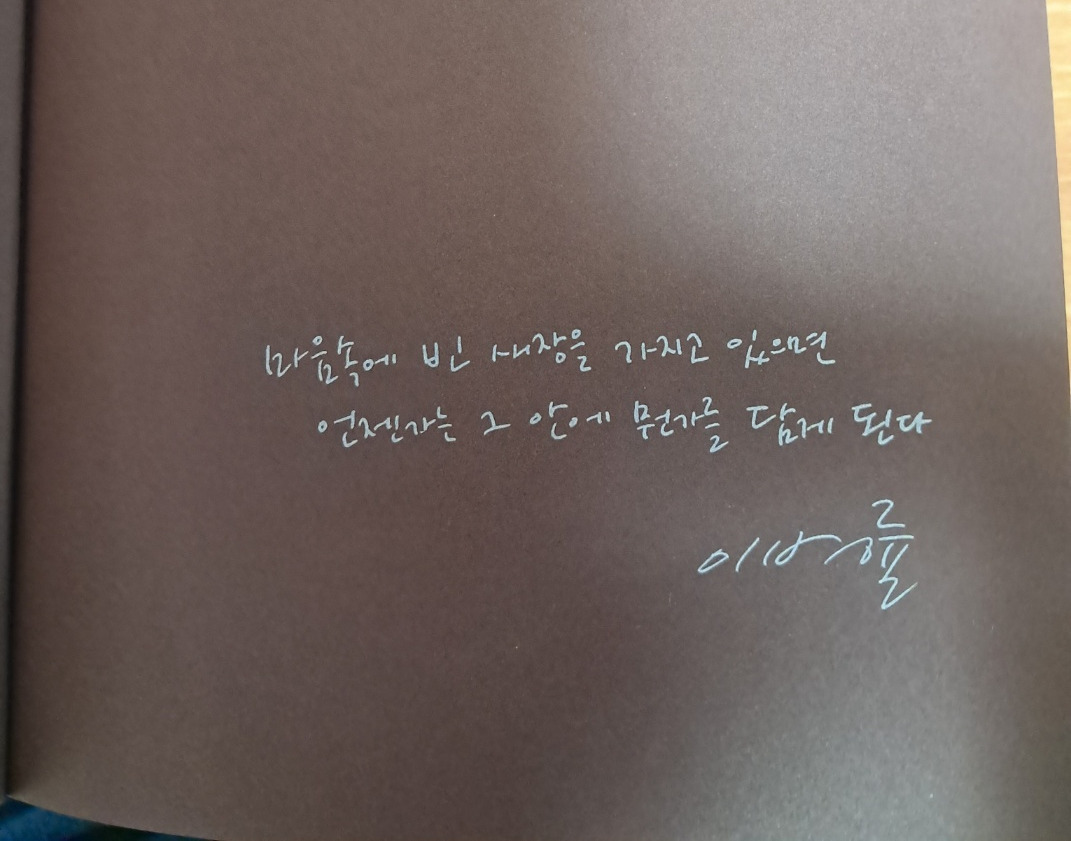 마음속에 빈 새장을 가지고 있으면
언젠가는 그 안에 뭔가를 담게 된다